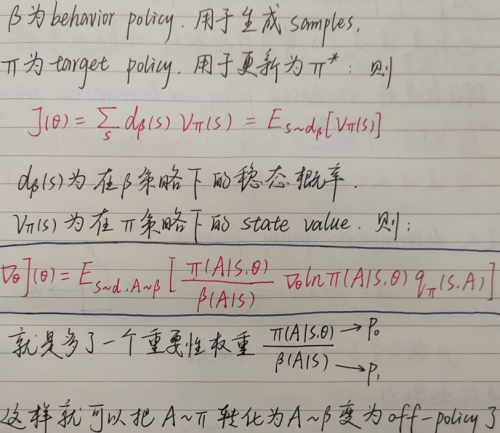 β为behavior policy. 用于生成samples.
π为target policy. 用于更新为π*: 则
J(θ) = Σ_s d_β(s) V_π(s) = E_{s~d_β}[V_π(s)]
d_β(s)为在β策略下的稳态概率.
V_π(s)为在π策略下的state value. 则:
∇_θJ(θ) = E_{s~d.A~β}[π(A|S,θ)/β(A|S) ∇_θ ln π(A|S,θ) q_π(S,A)]
就是多了一个重要性权重 π(A|S,θ)/β(A|S) →P₀ →P₁
这样就可以把A~π转化为A~β变为off-policy了